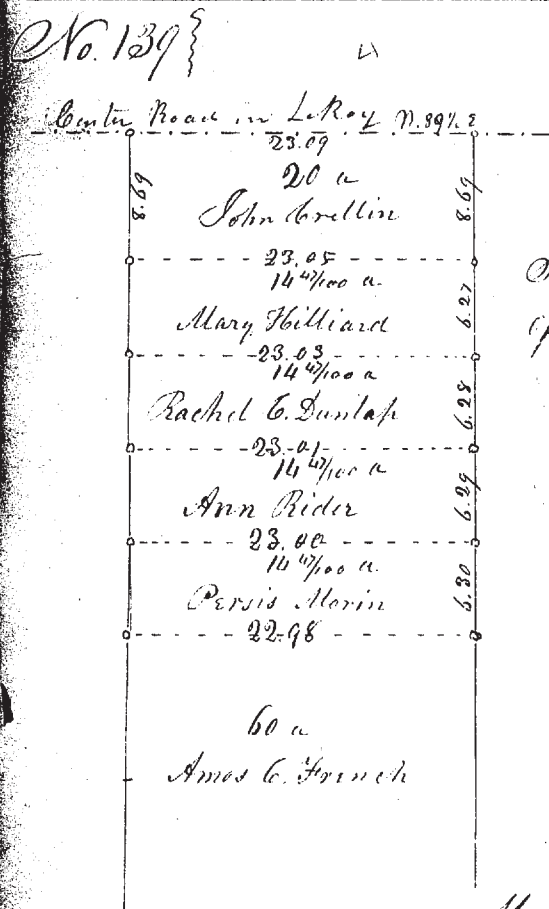 No. 139
Center Road in LeRoy N. 89½ E
23.09
20 a
8.69
8.69
John Crellin
23.05
14 47/100 a.
Mary Hilliard
6.27
23.03
14 47/100 a
Rachel C. Dunlap
6.28
23.01
14 47/100 a
Ann Rider
6.29
23.00
14 47/100 a.
Persis Morin
6.30
22.98
60 a
Amos C. French